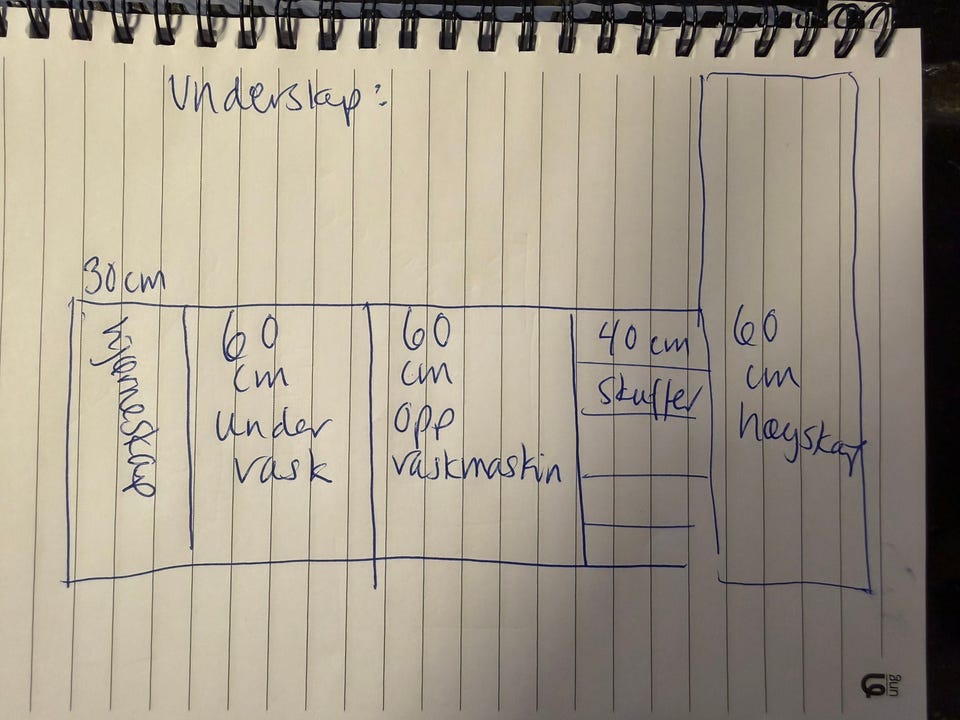 Underskap:
30 cm
hjørneskap
60
cm
under
vask
60
cm
opp
vaskmaskin
40 cm
skuffer
60
cm
høyskap
ung